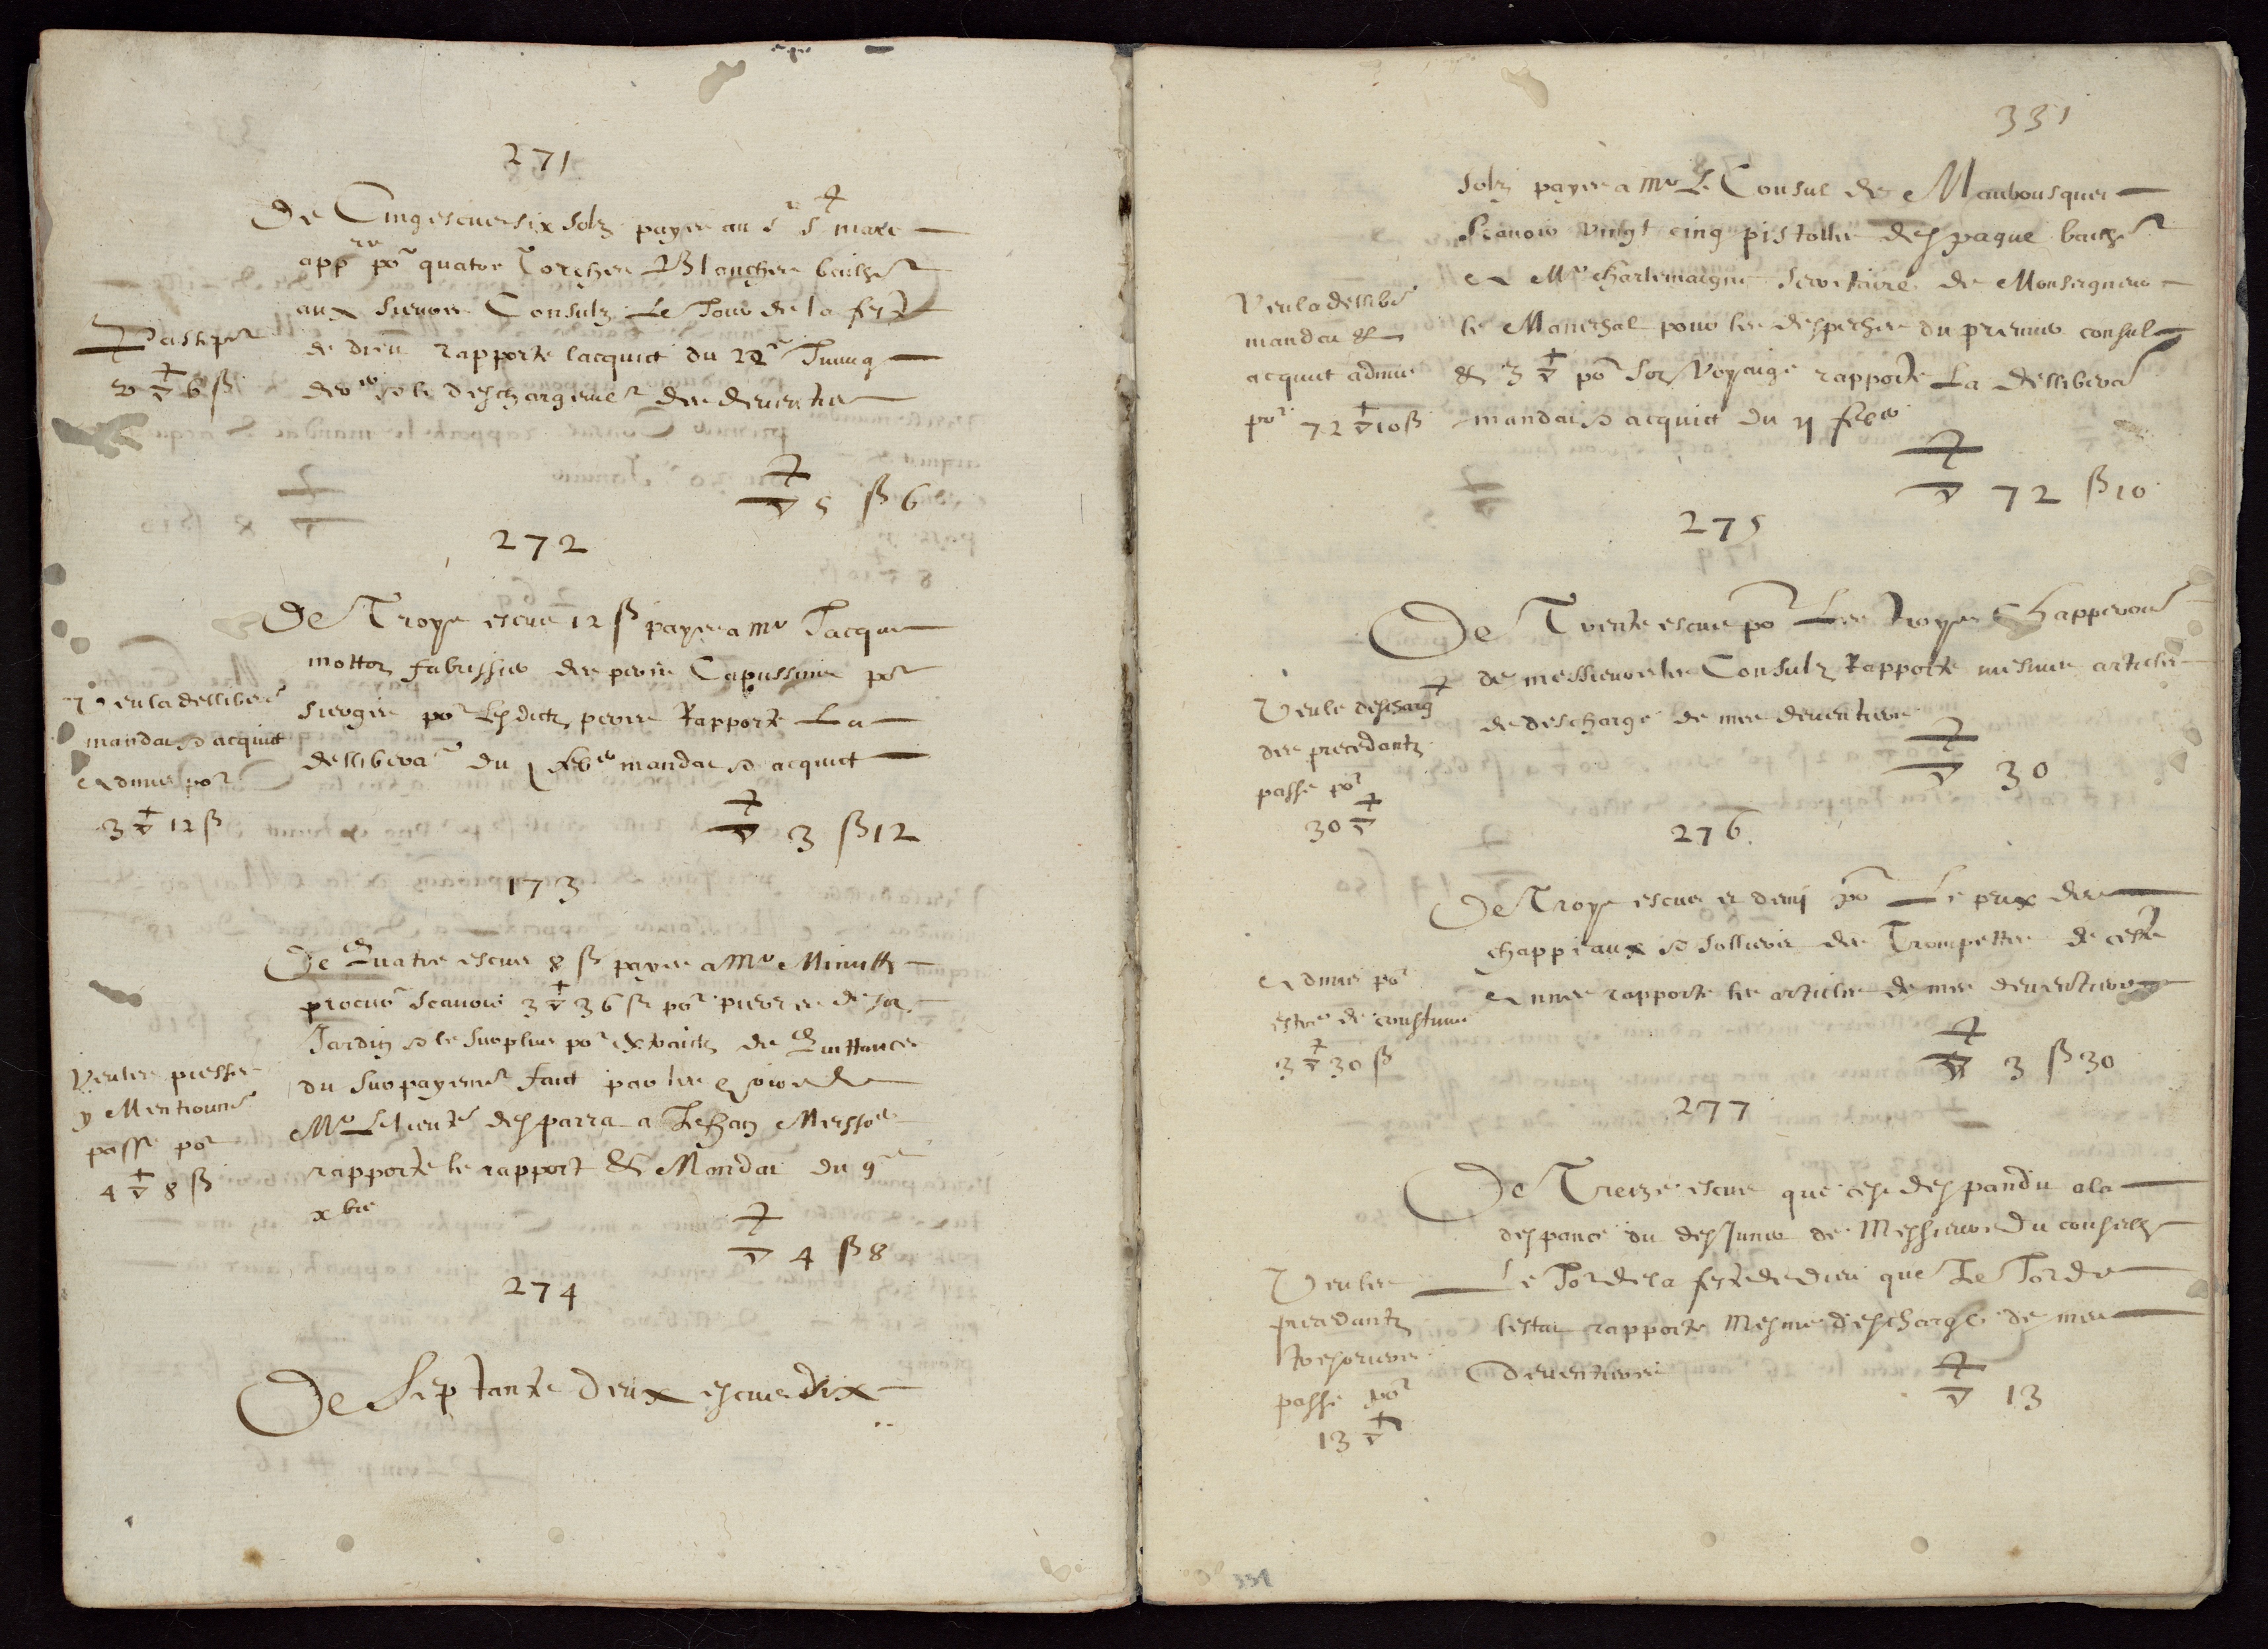 271
De Cinq escus six solz payes au Sr St marc
appre por quatre Torches Blanches bailhes
aux sieurs Consulz Le Jour de la feste
de dieu rapporte lacquict du 22e Juing
Passe por
5 ▽ 6 ß
5 ß 6
272
De Troys escus 12 ß payes a Mr Jacques
motton fabrissier des peres Capussins por
sierges por Lesdictz peres Rapporte La
dellibera du 1 febvr mandat et acquict
Veu la dellibera
mandat et acquict
Admis por
3 ▽ 12 ß
3 ß 12
173
De Quatre escus 8 ß payes a Mr Minutti
procur scavoir 3 ▽ 36 ß por pieces de son
Jardin et le surplus por extraictz de Quittances
du surpayemt faict par les hoirs de
Mr Le lieutt desparra a Jehan Meysso
rapporte le rapport & Mandat du 9e
xbre
Veu les piesses
y Mentionnes
passe por
4 ▽ 8 ß
4 ß 8
274
De Septante deux escus dix
331
solz payes a Mr Le Consul de Maubousquet
Scavoir vingt cinq pistolles despagne bailhes
A Mr Charlemaigne secretaire de Monseigneur
le Mareschal pour les despeches du premier consul
& 3 ▽ por son Voyaige rapporte La dellibera
mandat et acquict du 11 febvr
Veu la dellibe
mandat &
acquict admis
por 72 ▽ 10 ß
72 ß 10
275
De Trente escus por Les troys Chapperons
de messieurs les Consulz Rapporte mesmes articles
de descharge de mes devantiers
Veu le descharg
des precedantz
passe por
30 ▽
30
276
De Troys escus et demy por Le prix des
chappeaux et solliers des Trompettes de ceste
Annee rapporte les articles de mes devantiers
Admis por
estre de coustume
3 ▽ 30 ß
3 ß 30
277
De Treize escus que cest despandu a la
despance du desjuner de Messieurs du conseilh
Le Jor de la feste de dieu que Le Jor de
lestat rapporte Mesme descharge de mes
devantiers
Veu les
precedantz
tresoriers
passe por
13 ▽
13
331